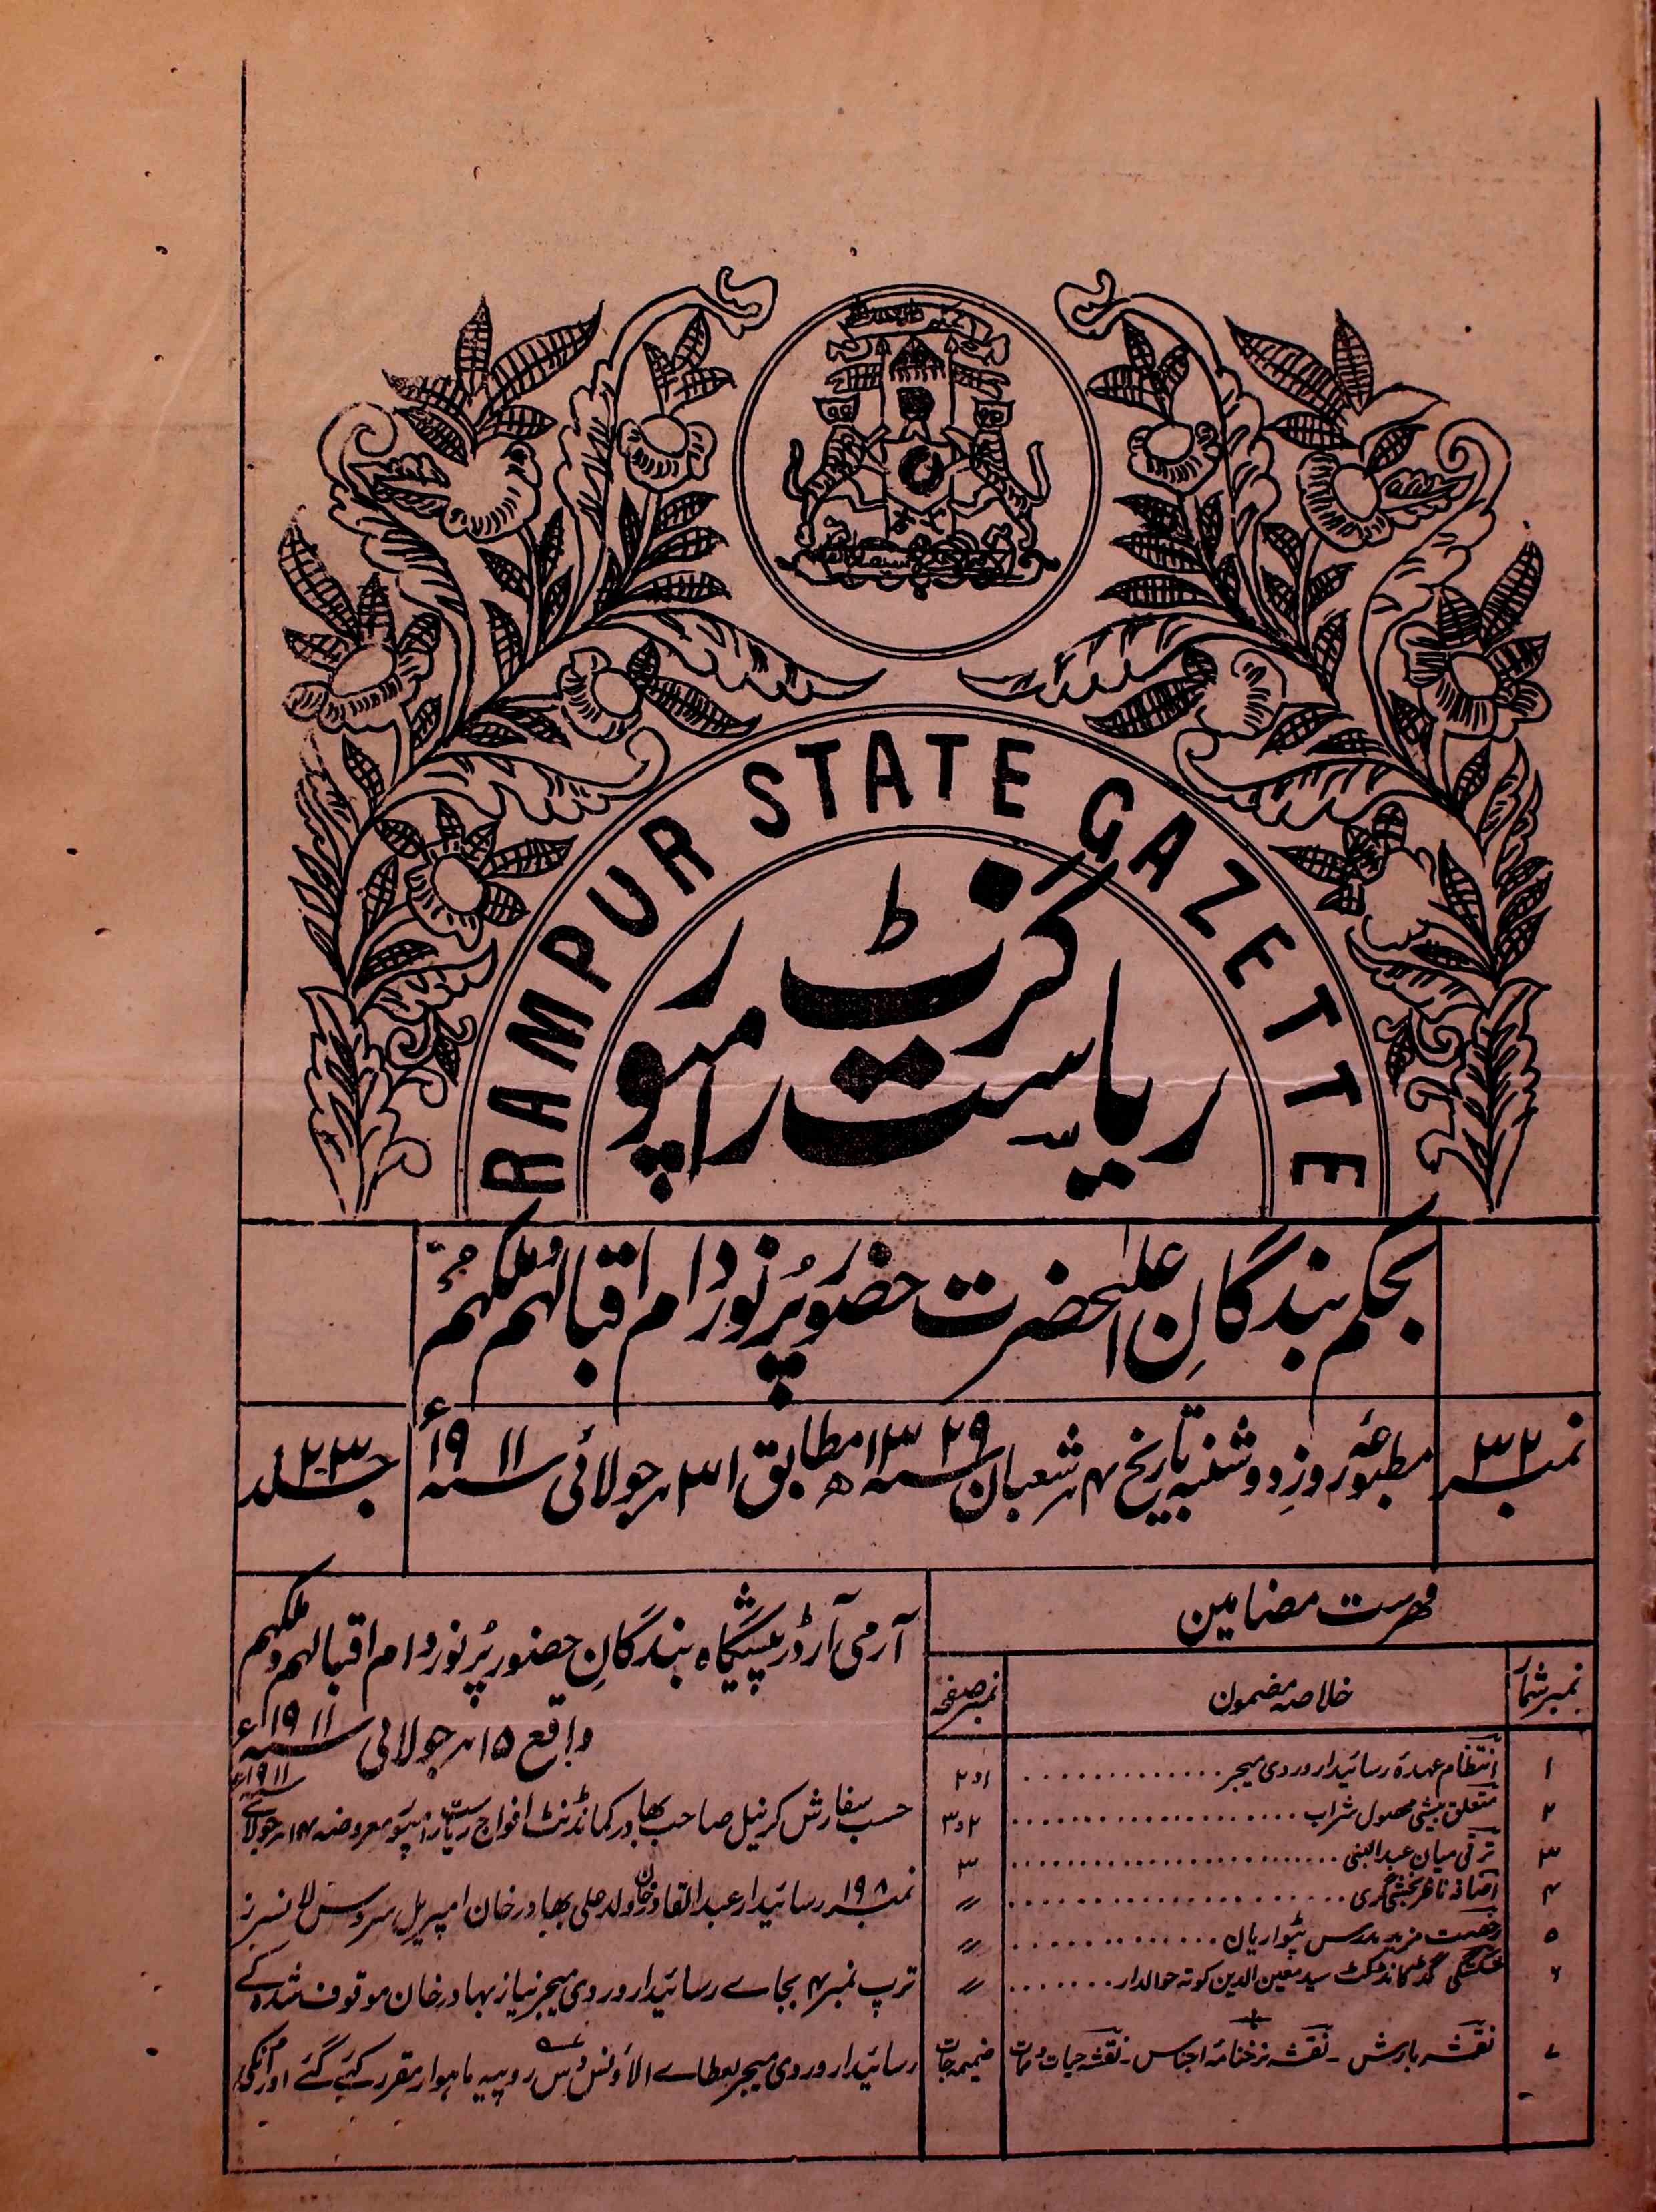 RAMPUR STATE GAZETTE
گزٹ
ریاست رامپور
بحکم بندگانِ اعلیٰحضرت حضور پُرنور دام اقبالہُم و مُلکہُم
نمبر ۳۲
مطبوعہ روزِ دوشنبہ تاریخ ۴ شعبان ۱۳۲۹ھ مطابق ۳۱ جولائی سنہ ۱۹۱۱ء
جلد ۲۳
فہرست مضامین
نمبر شمار خلاصہ مضمون نمبر صفحہ
۱ انتظام عہدہ رسائیدار وردی میجر ۱و۲
۲ متعلق بیشی محصول شراب ۲و۳
۳ ترقی میاں عبدالنبی ۳
۴ اضافہ ناظر بخشی گری 〃
۵ رخصت مزید مدرس پٹواریان 〃
۶ گمشدگی گڈ کانڈکٹ سید معین الدین کوتہ حوالدار 〃
۷ نقشہ بارش ۔ نقشہ نرخنامہ اجناس ۔ نقشہ حیات و ممات ضمیمہ جات
آرمی آرڈر پیشگاہ بندگانِ حضور پُرنور دام اقبالہم و ملکہم
واقع ۱۵ جولائی سنہ ۱۹۱۱ء
حسب سفارش کرنیل صاحب بہادر کمانڈنٹ افواج ریاست رامپور معروضہ ۱۴ جولائی سنہ ۱۹۱۱ء
نمبر ۱۹۸ رسائیدار عبدالقادر خان ولد علی بہادر خان امپیریل سروس لانسرز
ترپ نمبر ۴ بجاے رسائیدار وردی میجر نیاز بہادر خان موقوف شدہ کے
رسائیدار وردی میجر بعطاے الاؤنس دس روپیہ ماہوار مقرر کئے گئے اور انکی